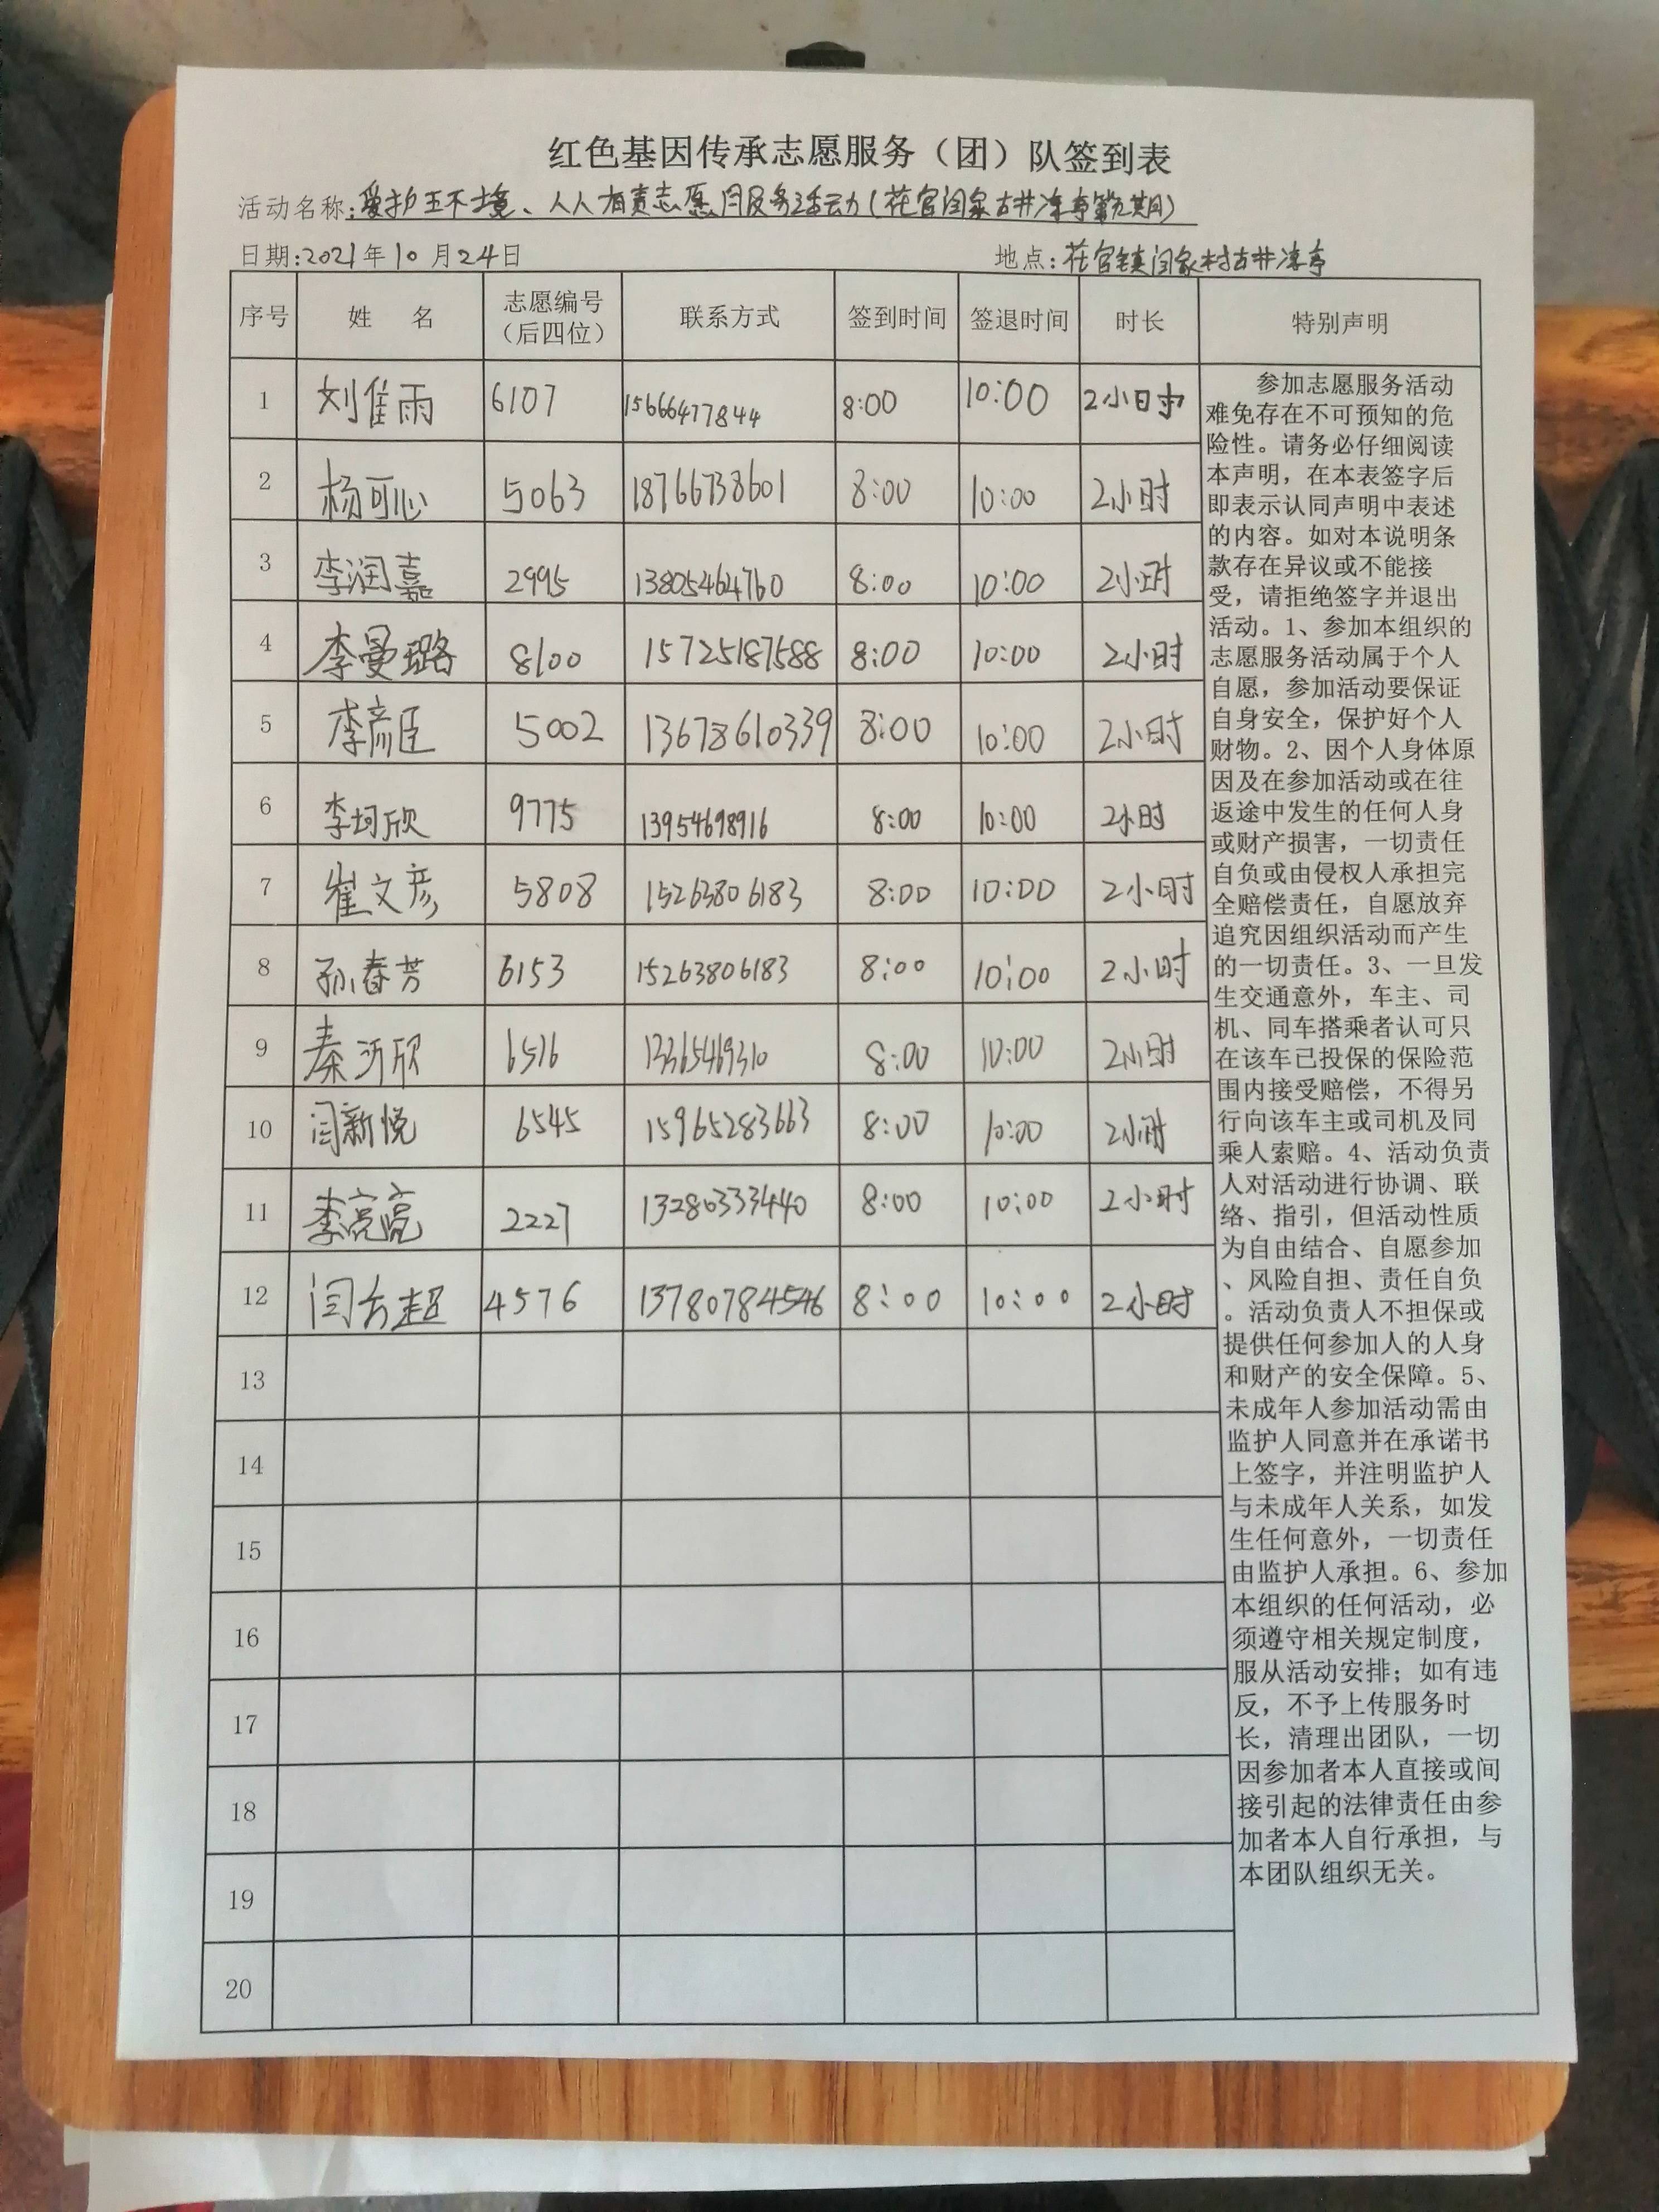 红色基因传承志愿服务（团）队签到表
活动名称:爱护环境、人人有责志愿服务活动(花官闫家古井凉亭第九期)
日期:2021年10月24日 地点:花官镇闫家村古井凉亭
序号 姓名 志愿编号（后四位） 联系方式 签到时间 签退时间 时长 特别声明
1 刘雨 6107 15666477844 8:00 10:00 2小时
2 杨可心 5063 18766738601 8:00 10:00 2小时
3 李润嘉 2995 13805464760 8:00 10:00 2小时
4 李曼璐 8100 15725187588 8:00 10:00 2小时
5 李彦臣 5002 13678610339 8:00 10:00 2小时
6 李均欣 9775 13954698916 8:00 10:00 2小时
7 崔文彦 5808 15263806183 8:00 10:00 2小时
8 孙春芳 6153 15263806183 8:00 10:00 2小时
9 秦沂欣 6516 13365469310 8:00 10:00 2小时
10 闫新悦 6545 15965283663 8:00 10:00 2小时
11 李亮亮 2227 13280333440 8:00 10:00 2小时
12 闫方超 4576 13780784546 8:00 10:00 2小时
13
14
15
16
17
18
19
20
参加志愿服务活动
难免存在不可预知的危
险性。请务必仔细阅读
本声明，在本表签字后
即表示认同声明中表述
的内容。如对本说明条
款存在异议或不能接
受，请拒绝签字并退出
活动。1、参加本组织的
志愿服务活动属于个人
自愿，参加活动要保证
自身安全，保护好个人
财物。2、因个人身体原
因及在参加活动或在往
返途中发生的任何人身
或财产损害，一切责任
自负或由侵权人承担完
全赔偿责任，自愿放弃
追究因组织活动而产生
的一切责任。3、一旦发
生交通意外，车主、司
机、同车搭乘者认可只
在该车已投保的保险范
围内接受赔偿，不得另
行向该车主或司机及同
乘人索赔。4、活动负责
人对活动进行协调、联
络、指引，但活动性质
为自由结合、自愿参加
、风险自担、责任自负
。活动负责人不担保或
提供任何参加人的人身
和财产的安全保障。5、
未成年人参加活动需由
监护人同意并在承诺书
上签字，并注明监护人
与未成年人关系，如发
生任何意外，一切责任
由监护人承担。6、参加
本组织的任何活动，必
须遵守相关规定制度，
服从活动安排；如有违
反，不予上传服务时
长，清理出团队，一切
因参加者本人直接或间
接引起的法律责任由参
加者本人自行承担，与
本团队组织无关。